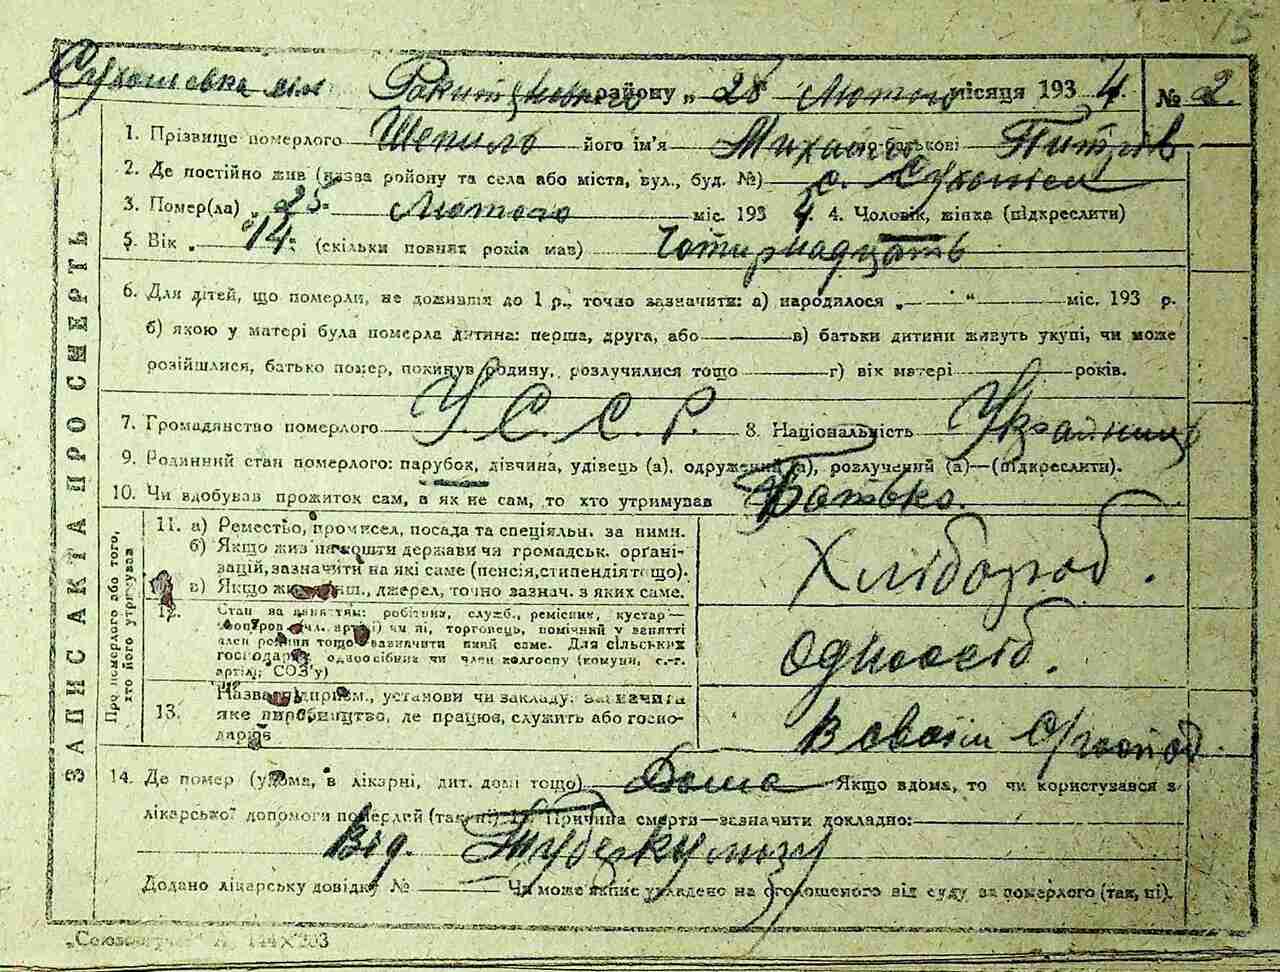 15
району „ 28 Лютого місяця 193 4. № 2.
1. Прізвище померлого Шепиль його ім'я Михайло по-батькові Питрів
2. Де постійно жив (назва району та села або міста, вул., буд. №) с.
3. Помер(ла) „ 25 Лютого міс. 193 4. 4. Чоловік, жінка (підкреслити)
5. Вік „ 14 (скільки повних років мав) Чотирнадцять
6. Для дітей, що померли, не доживши до 1 р., точно зазначити: а) народилося „ “ міс. 193 р.
б) якою у матері була померла дитина: перша, друга, або в) батьки дитини живуть укупі, чи може
розійшлися, батько помер, покинув родину, розлучилися тощо г) вік матері років.
7. Громадянство померлого У.С.С.Р. 8. Національність Українець
9. Родинний стан померлого: парубок, дівчина, удівець (а), одружений (а), розлучений (а)—(підкреслити).
10. Чи здобував прожиток сам, а як не сам, то хто утримував Батько.
ЗАПИС АКТА ПРО СМЕРТЬ
Про померлого або того, хто його утримував
11. а) Ремество, промисел, посада та спеціяльн. за ними.
б) Якщо жив на кошти держави чи громадськ. органі-
зацій, зазначити на які саме (пенсія, стипендія тощо).
в) Якщо жив з інш. джерел, точно зазнач. з яких саме.
Хлібороб.
12. Стан за заняттям: робітник, служб., ремісник, кустар—
чи ні, торговець, помічний у занятті
член родини тощо зазначити який саме. Для сільських
господарів одноосібник чи член колгоспу (комуни, с.-г.
артілі, СОЗ'у)
одноосіб.
13. Назва підприєм., установи чи закладу: зазначити
яке виробництво, де працює, служить або госпо-
дарює
в своїм господ.
14. Де помер (удома, в лікарні, дит. домі тощо) Дома Якщо вдома, то чи користувався з
лікарської допомоги померлий (так, ні) 15. Причина смерти—зазначити докладно:
Від Туберкульозу
Додано лікарську довідку № Чи може запис укладено на оголошеного від суду за померлого (так, ні).
144×203